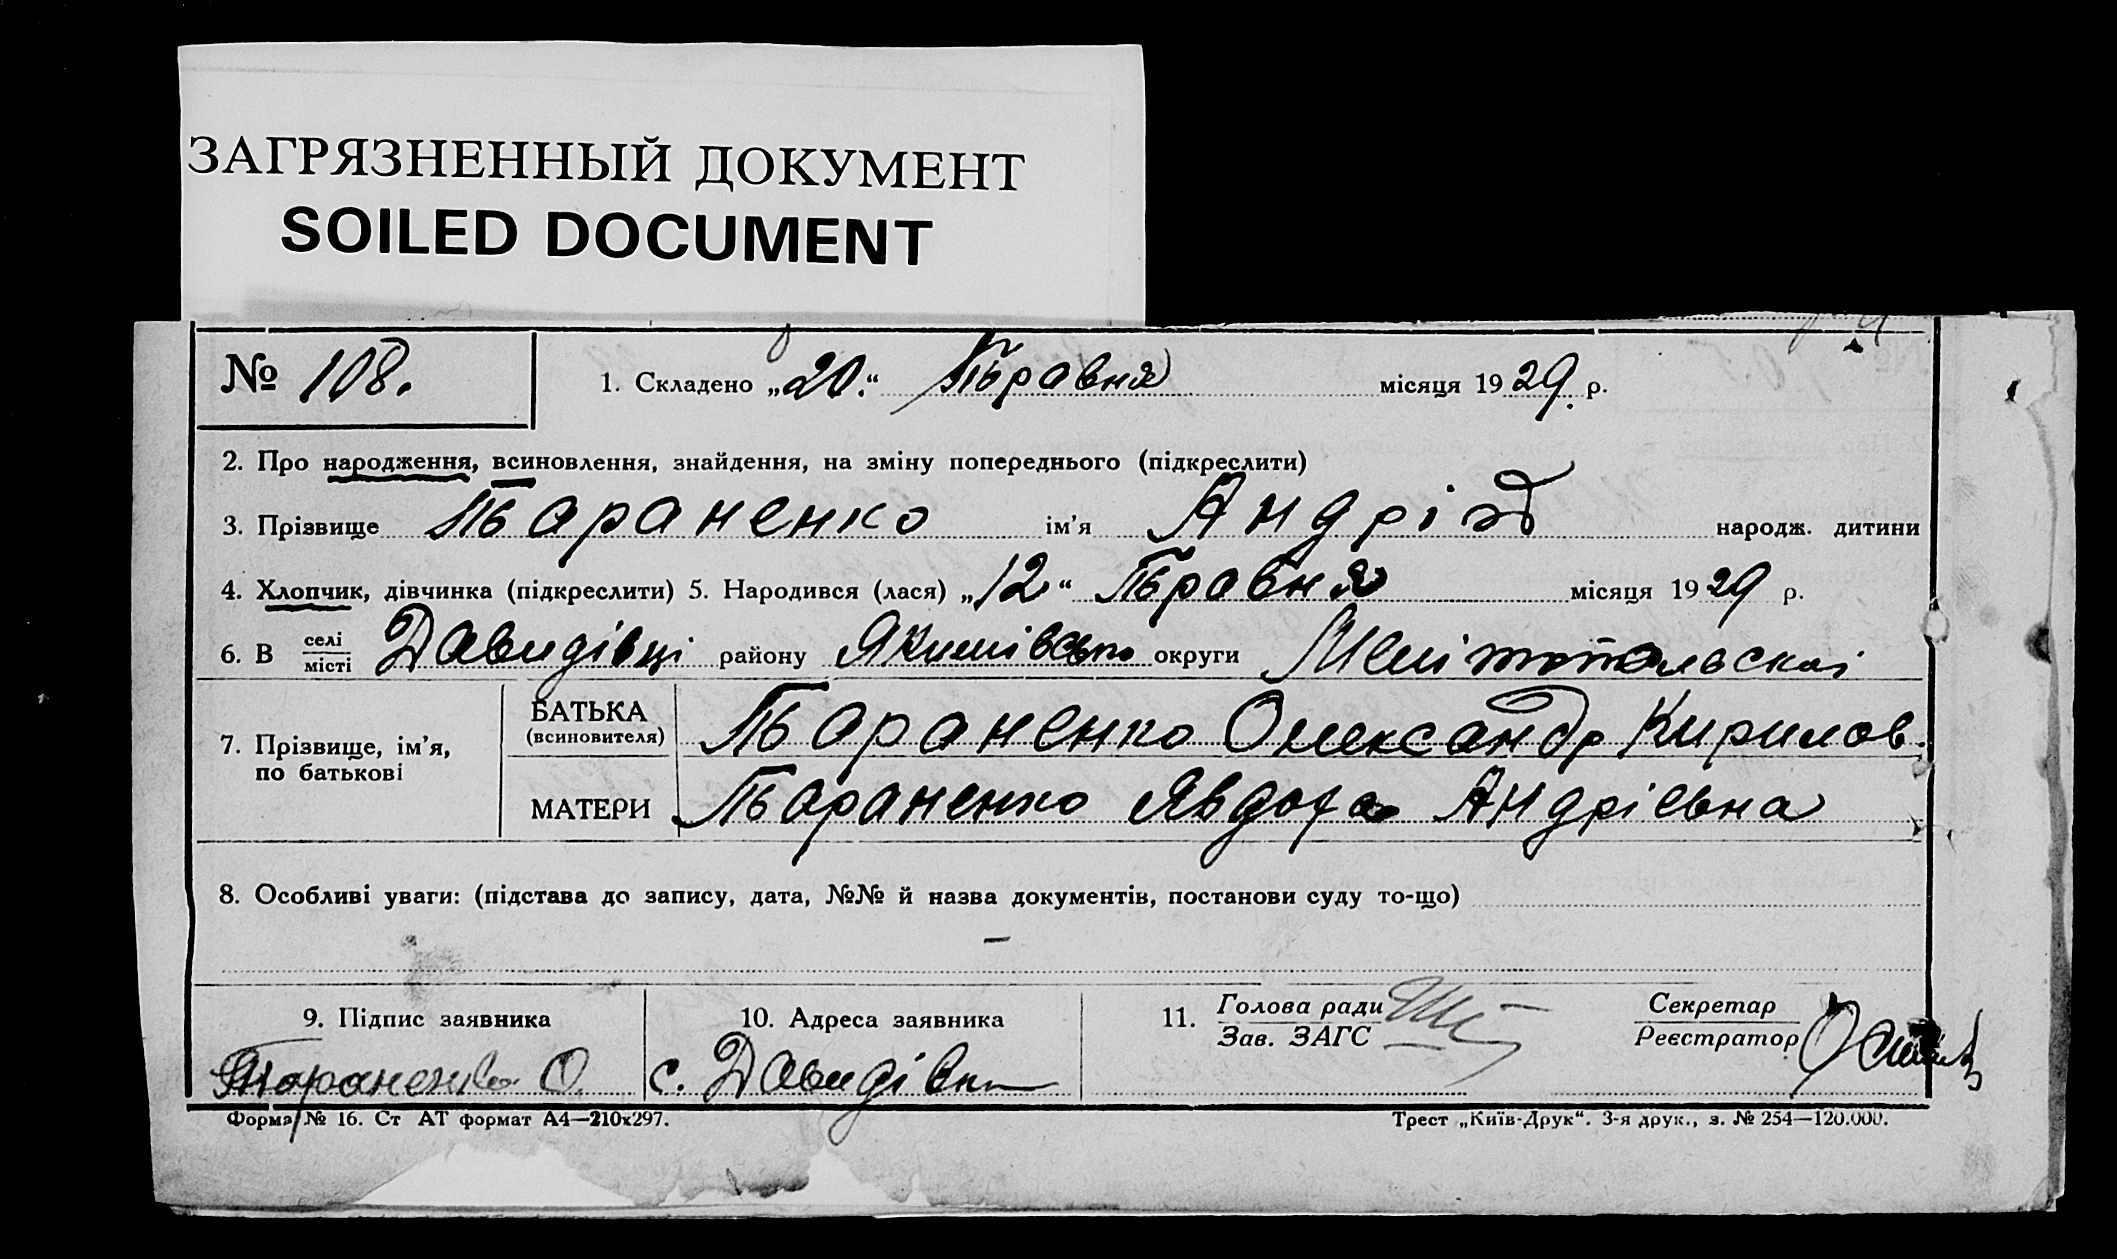 ЗАГРЯЗНЕННЫЙ ДОКУМЕНТ
SOILED DOCUMENT
№ 108. 1. Складено „20.“ Травня місяця 1929 р.
2. Про народження, всиновлення, знайдення, на зміну попереднього (підкреслити)
3. Прізвище Тараненко ім'я Андрій народж. дитини
4. Хлопчик, дівчинка (підкреслити) 5. Народився (лася) „12“ Травня місяця 1929 р.
6. В селі місті Давидівці району Якимівсько округи Мелітопольскоі
7. Прізвище, ім'я, по батькові
БАТЬКА (всиновителя) Тараненко Олександр Кирилов.
МАТЕРИ Тараненко Явдоха Андрієвна
8. Особливі уваги: (підстава до запису, дата, №№ й назва документів, постанови суду то-що)
–
9. Підпис заявника 10. Адреса заявника 11. Голова ради Зав. ЗАГС Секретар Реєстратор
Тараненко О. с. Давидівка
Форма № 16. Ст АТ формат А4—210x297. Трест „Київ-Друк“. 3-я друк., з. № 254—120.000.